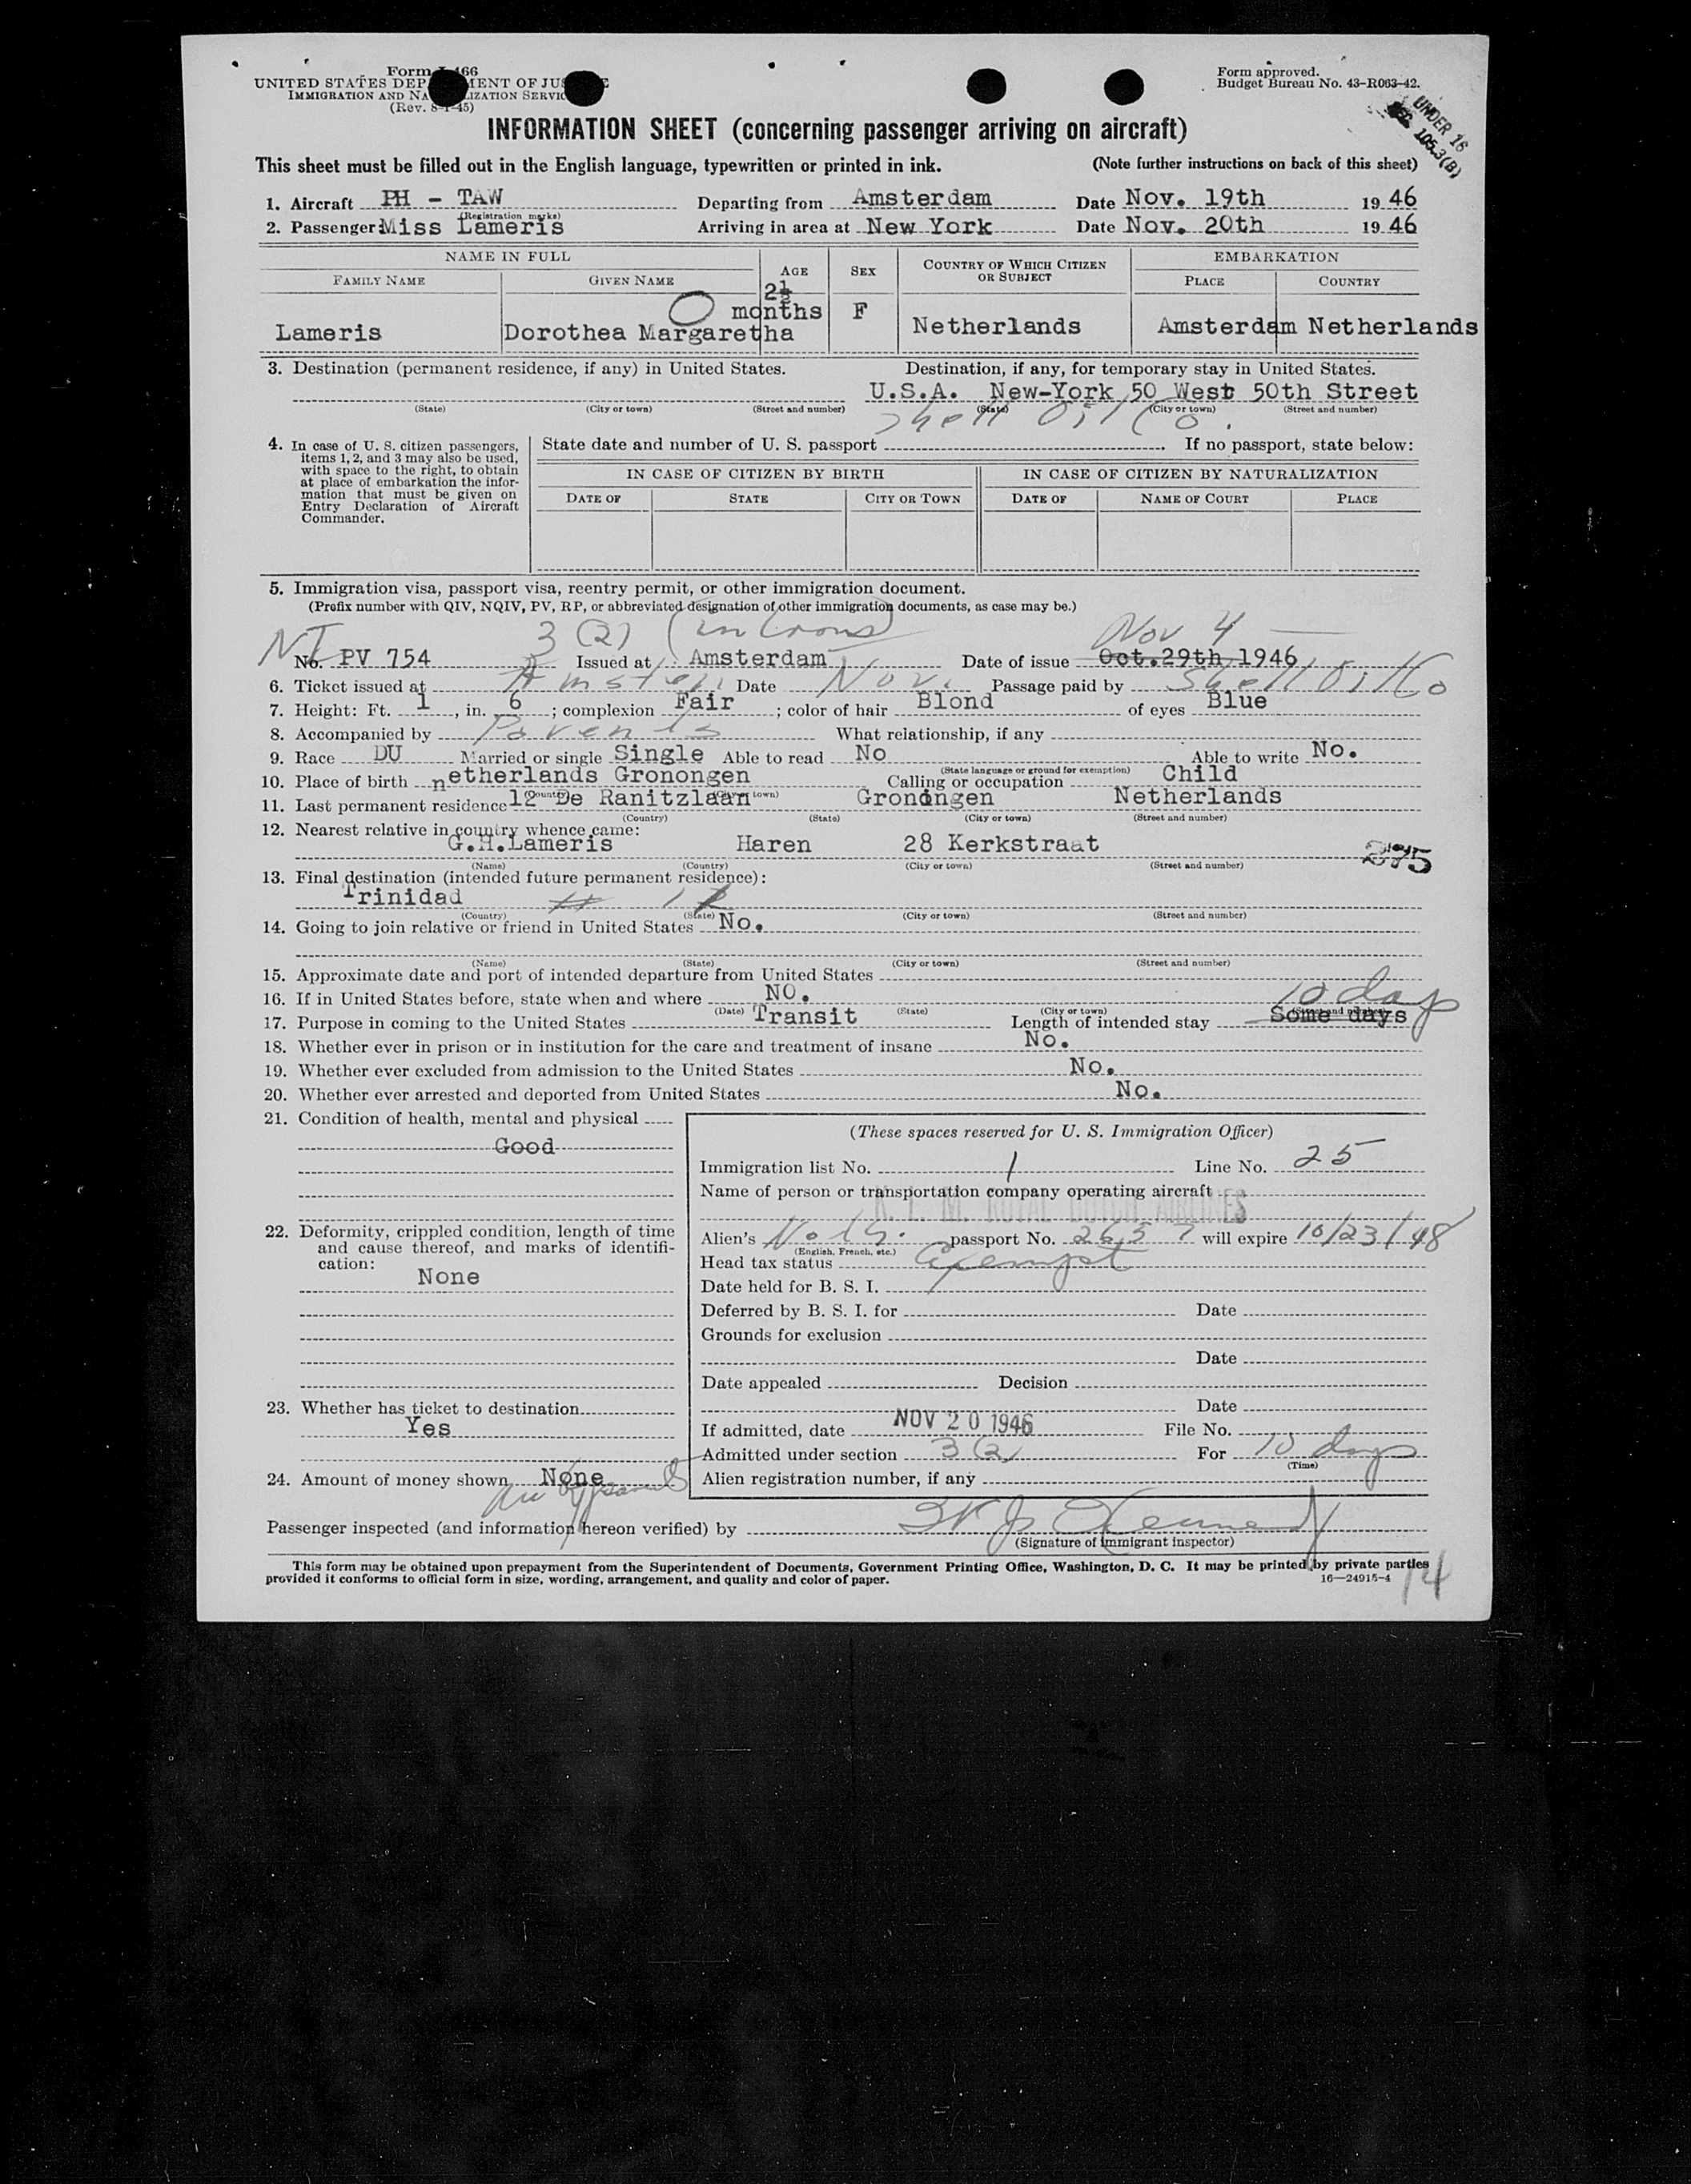 Form I-466
UNITED STATES DEPARTMENT OF JUSTICE
IMMIGRATION AND NATURALIZATION SERVICE
(Rev. 8-1-45)
Form approved.
Budget Bureau No. 43-R063-42.
UNDER 16
SEC 105.3(B)
INFORMATION SHEET (concerning passenger arriving on aircraft)
This sheet must be filled out in the English language, typewritten or printed in ink. (Note further instructions on back of this sheet)
1. Aircraft PH - TAW Departing from Amsterdam Date Nov. 19th 1946
(Registration marks)
2. Passenger: Miss Lameris Arriving in area at New York Date Nov. 20th 1946
NAME IN FULL AGE SEX COUNTRY OF WHICH CITIZEN OR SUBJECT EMBARKATION
FAMILY NAME GIVEN NAME PLACE COUNTRY
0 2½ months F
Lameris Dorothea Margaretha Netherlands Amsterdam Netherlands
3. Destination (permanent residence, if any) in United States. Destination, if any, for temporary stay in United States.
U.S.A. New-York 50 West 50th Street
(State) (City or town) (Street and number) (State) (City or town) (Street and number)
Shell Oil Co.
4. In case of U. S. citizen passengers, items 1, 2, and 3 may also be used, with space to the right, to obtain at place of embarkation the information that must be given on Entry Declaration of Aircraft Commander.
State date and number of U. S. passport If no passport, state below:
IN CASE OF CITIZEN BY BIRTH IN CASE OF CITIZEN BY NATURALIZATION
DATE OF STATE CITY OR TOWN DATE OF NAME OF COURT PLACE
5. Immigration visa, passport visa, reentry permit, or other immigration document.
(Prefix number with QIV, NQIV, PV, RP, or abbreviated designation of other immigration documents, as case may be.)
3 (2) (in Nov 4
No. PV 754 Issued at Amsterdam Date of issue Oct.29th 1946
6. Ticket issued at Amster. Date Nov. Passage paid by Shell Oil Co
7. Height: Ft. 1, in. 6; complexion Fair; color of hair Blond of eyes Blue
8. Accompanied by Parents What relationship, if any
9. Race DU Married or single Single Able to read No Able to write No.
(State language or ground for exemption)
10. Place of birth netherlands Gronongen Calling or occupation Child
(Country) (City or town)
11. Last permanent residence 12 De Ranitzlaan Groningen Netherlands
(Country) (State) (City or town) (Street and number)
12. Nearest relative in country whence came:
G.H.Lameris Haren 28 Kerkstraat 275
(Name) (Country) (City or town) (Street and number)
13. Final destination (intended future permanent residence):
Trinidad
(Country) (State) (City or town) (Street and number)
14. Going to join relative or friend in United States No.
(Name) (State) (City or town) (Street and number)
15. Approximate date and port of intended departure from United States
16. If in United States before, state when and where NO. 10 days
(Date) (State) (City or town) (Street and number)
17. Purpose in coming to the United States Transit Length of intended stay Some days
18. Whether ever in prison or in institution for the care and treatment of insane No.
19. Whether ever excluded from admission to the United States No.
20. Whether ever arrested and deported from United States No.
21. Condition of health, mental and physical
Good
22. Deformity, crippled condition, length of time and cause thereof, and marks of identification:
None
23. Whether has ticket to destination
Yes
24. Amount of money shown None
(These spaces reserved for U. S. Immigration Officer)
Immigration list No. 1 Line No. 25
Name of person or transportation company operating aircraft
K. L. M. ROYAL DUTCH AIRLINES
Alien's Neth. passport No. 2657 will expire 10/23/48
(English, French, etc.)
Head tax status Exempt
Date held for B. S. I.
Deferred by B. S. I. for Date
Grounds for exclusion
Date
Date appealed Decision
Date
If admitted, date NOV 20 1946 File No.
Admitted under section 3(2) For 10 days
(Time)
Alien registration number, if any
Passenger inspected (and information hereon verified) by
(Signature of immigrant inspector)
This form may be obtained upon prepayment from the Superintendent of Documents, Government Printing Office, Washington, D. C. It may be printed by private parties
provided it conforms to official form in size, wording, arrangement, and quality and color of paper. 16—24915-4
14